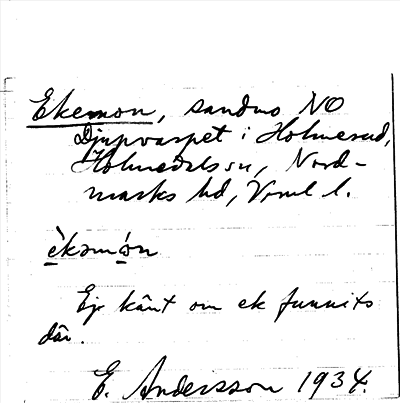 Ekemon, sandås NO
Djupvarpet i Holmerud,
Holmedals sn, Nord-
marks hd, Vrml l.
èkəmón
Ej känt om ek funnits
där.
E. Andersson 1934.